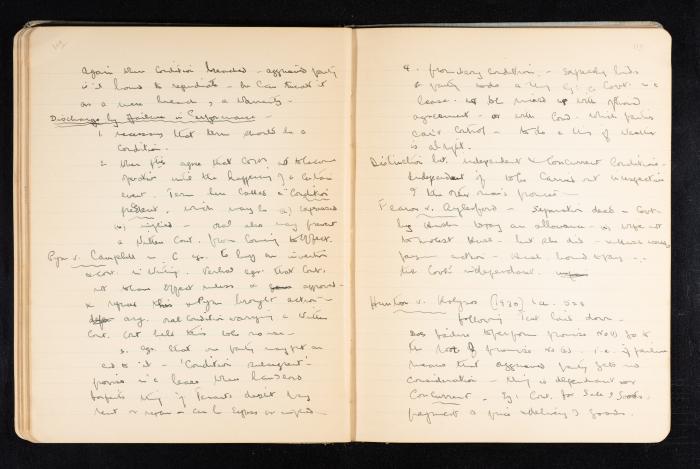 Again when Condition breached - aggrieved party
isn't bound to repudiate - he can treat it
as a mere breach, a Warranty.
Discharge by failure in Performance -
1. necessary that term should be a
Condition.
2. When pties agree that Cont not to become
operative until the happening of a Certain
event. Term here Called a "Condition
precedent, which may be a) expressed
b) implied - oral also may prevent
a Written Cont. from Coming to Effect.
Pym v. Campbell - C agr. to buy an invention
Cont. in Writing. Verbal agr. that Cont.
not to have Effect unless approved -
Pym brought action -
arg. oral Condition varying a Written
Cont. Cont held this to be no
3. agr. that one party may put an
end to it - 'Condition Subsequent' -
proviso in a lease when landlord
forfeits thing if Tenant doesn't pay
rent or repair - can be express or implied -
4. Promissory Conditions. - expressly binds
a party to do a thing Eg: Covt. in a
lease. with
agreement - or with Cond. which parties
can't Control - to do a thing if weather
is alright.
Distinction bet. independent & Concurrent Conditions -
Independent if to be Carried out irrespective
of the other man's promise -
Fearon v. Aylesford - Separation deed - Covt.
by Husb. to pay an allowance - wife not
to molest Husb. - but she did -
action - Husb. bound to pay -
the Covts independent.
(1930) 588
following Test laid down -
does failure to perform promise No (1) go to
the root of promise No (2). i.e. if failure
means that aggrieved party gets no
Consideration - thing is dependant or
Concurrent. Eg: Cont. for Sale of Goods.
payment of price & delivery of goods.